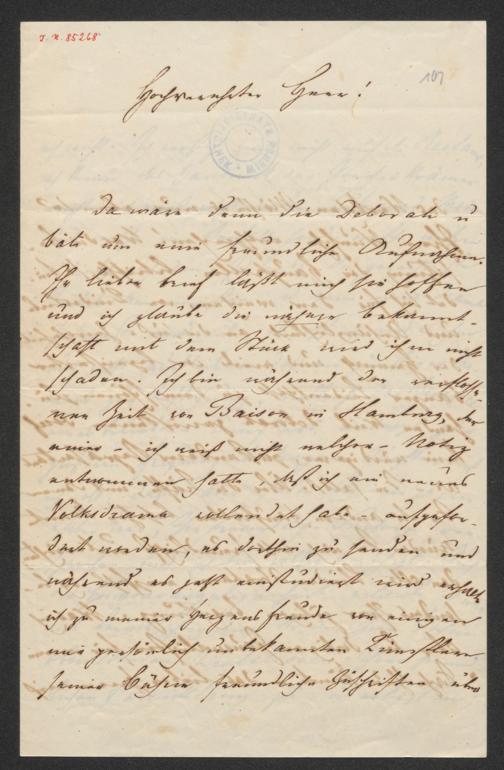 J. N. 85268
107
Hochverehrter Herr!
Da wäre denn die Deborah u
bäte um eine freundliche Aufnahme.
Ihr lieber Brief läßt mich sie hoffen
und ich glaube die nähere Bekannt-
schaft mit dem Stück wird ihm nicht
schaden. Ich bin während der verflosse-
nen Zeit von Baison in Hamburg, der
einer – ich weiß nicht welcher – Notiz
entnommen hatte, daß ich ein neues
Volksdrama vollendet habe – aufgefor-
dert worden, es dorthin zu senden und
während es jetzt einstudiert wird erhalte
ich zu meiner Herzensfreude von einigen
mir persönlich unbekannten Künstlern
seiner Bühne freundliche Zuschriften über